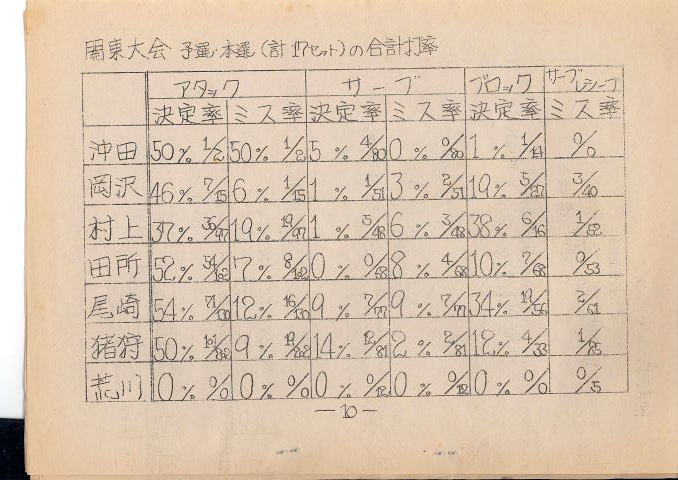 関東大会 予選・本選(計17セット)の合計打率
アタック サーブ ブロック サーブレシーブ
決定率 ミス率 決定率 ミス率 決定率 ミス率
沖田 50% 1/2 50% 1/2 5% 4/80 0% 0/80 1% 0/0
岡沢 46% 7/15 6% 1/15 1% 1/51 3% 2/51 19% 3/40
村上 37% 36/97 19% 19/97 1% 6% 3/48 38% 6/16 1/52
田所 52% 7% 0% 0/68 8% 10% 7/68 0/53
尾崎 54% 12% 16/130 9% 7/77 9% 7/77 34% 19/56 2/51
猪狩 50% 9% 14% 12/81 2% 2/81 12% 4/33 1/85
荒川 0% 0/0 0% 0/0 0% 0/12 0% 0/12 0% 0/0
—10—